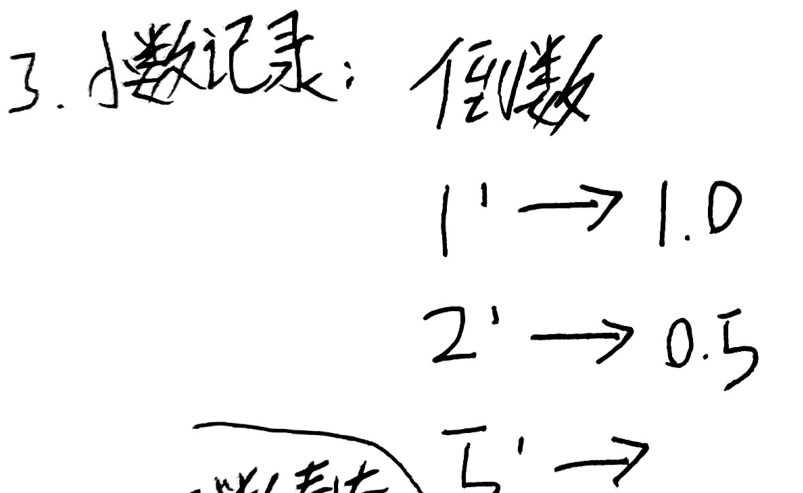 3. 小数记录: 倒数
1' → 1.0
2' → 0.5
5' →
数表达